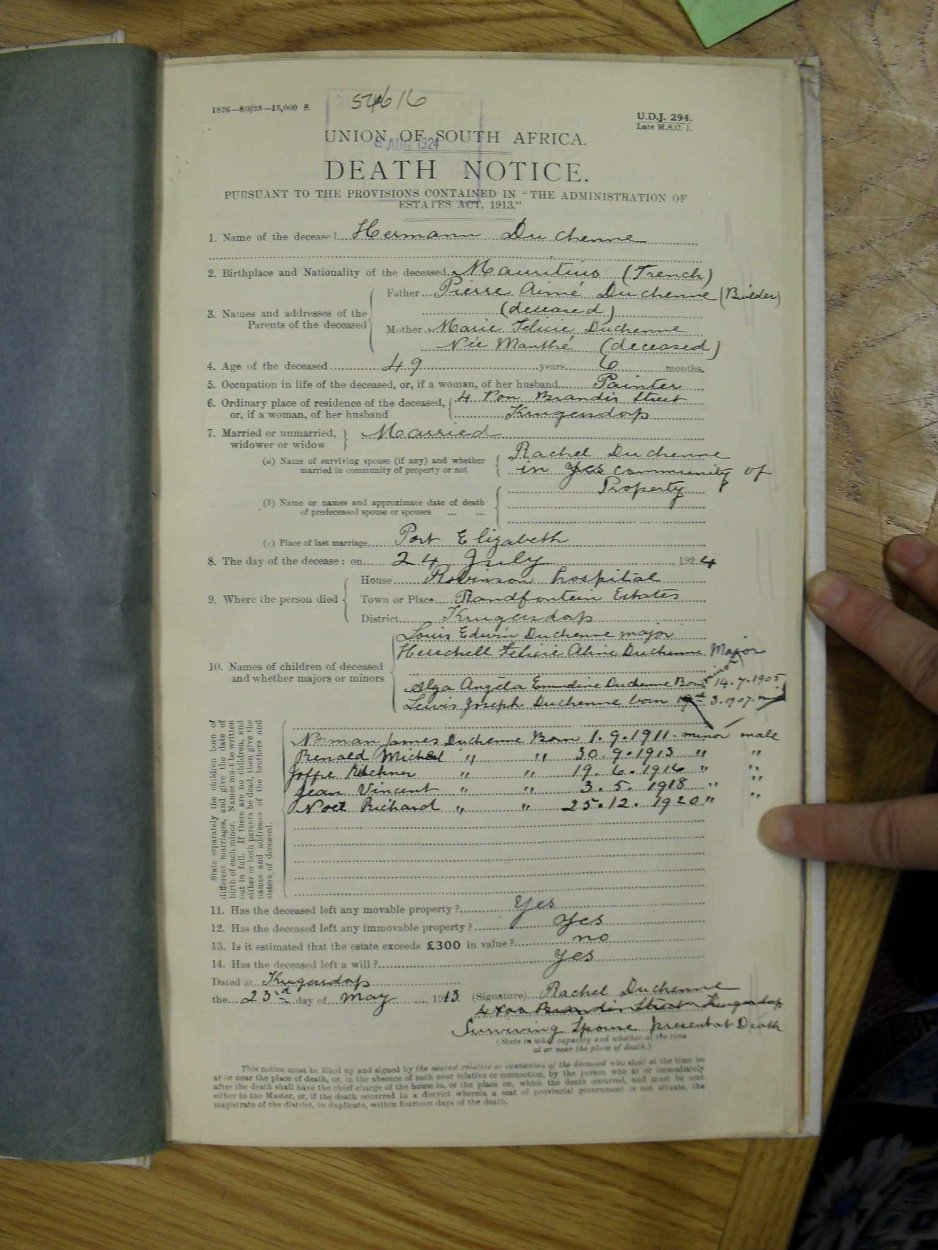 1826—8/3/23—15,000 S.
54616
U.D.J. 294.
Late M.S.C. 1.
UNION OF SOUTH AFRICA.
AUG 1924
DEATH NOTICE.
PURSUANT TO THE PROVISIONS CONTAINED IN "THE ADMINISTRATION OF
ESTATES ACT, 1913."
1. Name of the deceased Hermann Duchenne
2. Birthplace and Nationality of the deceased Mauritius (French)
3. Names and addresses of the Parents of the deceased
Father Pierre Aimé Duchenne (Builder)
(deceased)
Mother Marie Felicie Duchenne
Née Manthé (deceased)
4. Age of the deceased 49 years 6 months.
5. Occupation in life of the deceased, or, if a woman, of her husband Painter
6. Ordinary place of residence of the deceased, or, if a woman, of her husband
4 Von Brandis Street
Krugersdorp
7. Married or unmarried, widower or widow Married
(a) Name of surviving spouse (if any) and whether married in community of property or not
Rachel Duchenne
in community of
Property
(b) Name or names and approximate date of death of predeceased spouse or spouses ... ...
(c) Place of last marriage Port Elizabeth
8. The day of the decease: on 24 July, 1924
9. Where the person died
House Robinson hospital
Town or Place Randfontein Estates
District Krugersdorp
10. Names of children of deceased and whether majors or minors
Louis Edwin Duchenne major
Herschell Felicie Aline Duchenne Major
Olga Angéla Emmeline Duchenne Born 14.7.1905 minor
Lewis Joseph Duchenne born 3.1907
State separately the children born of different marriages, and give the date of birth of each minor. Names must be written out in full. If there are no children, and either or both parents be dead, then give the names and addresses of the brothers and sisters of deceased.
Norman James Duchenne Born 1.9.1911 minor male
Renald Michel " " 30.9.1913 " "
Joffre Kitchner " " 19.6.1916 " "
Jean Vincent " " 3.5.1918 " "
Noel Richard " " 25.12.1920 " "
11. Has the deceased left any movable property? Yes
12. Has the deceased left any immovable property? Yes
13. Is it estimated that the estate exceeds £300 in value? no
14. Has the deceased left a will? Yes
Dated at Krugersdorp
the 23rd day of May, 1913 (Signature) Rachel Duchenne
Brandis Street Krugersdorp
Surviving Spouse present at Death
(State in what capacity and whether at the time
at or near the place of death.)
This notice must be filled up and signed by the nearest relative or connection of the deceased who shall at the time be
at or near the place of death, or, in the absence of such near relative or connection, by the person who at or immediately
after the death shall have the chief charge of the house in, or the place on, which the death occurred, and must be sent
either to the Master, or, if the death occurred in a district wherein a seat of provincial government is not situate, the
magistrate of the district, in duplicate, within fourteen days of the death.